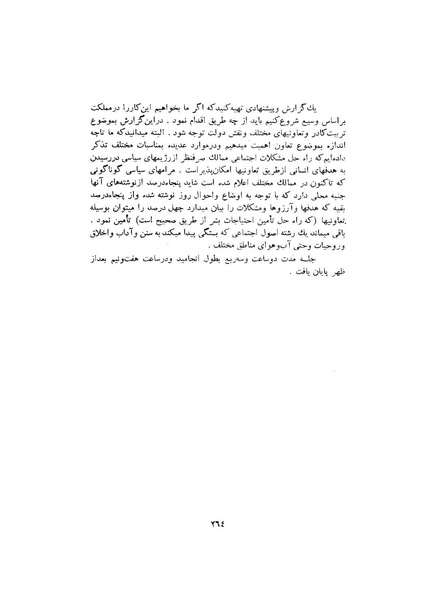 یك گزارش و پیشنهادی تهیه کنید که اگر ما بخواهیم این کار را در مملکت
بر اساس وسیع شروع کنیم باید از چه طریق اقدام نمود . در این گزارش بموضوع
تربیت کادر و تعاونیهای مختلف و نقش دولت توجه شود . البته میدانید که ما تا چه
اندازه بموضوع تعاون اهمیت میدهیم و در موارد عدیده بمناسبات مختلف تذکر
داده‌ایم که راه حل مشکلات اجتماعی ممالك صرفنظر از رژیمهای سیاسی در رسیدن
به هدفهای انسانی از طریق تعاونیها امکان‌پذیر است . مرامهای سیاسی گوناگونی
که تاکنون در ممالك مختلف اعلام شده است شاید پنجاه درصد از نوشته‌های آنها
جنبه محلی دارد که با توجه به اوضاع و احوال روز نوشته شده و از پنجاه درصد
بقیه که هدفها و آرزوها و مشکلات را بیان میدارد چهل درصد را میتوان بوسیله
تعاونیها (که راه حل تأمین احتیاجات بشر از طریق صحیح است) تأمین نمود .
باقی میماند یك رشته اصول اجتماعی که بستگی پیدا میکند به سنن و آداب و اخلاق
و روحیات و حتی آب و هوای مناطق مختلف .
جلسه مدت دو ساعت و سه ربع بطول انجامید و در ساعت هفت و نیم بعد از
ظهر پایان یافت .
۲۶٤